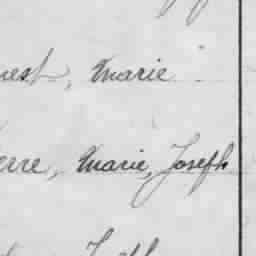 nest, Marie
erre, Marie, Joseph